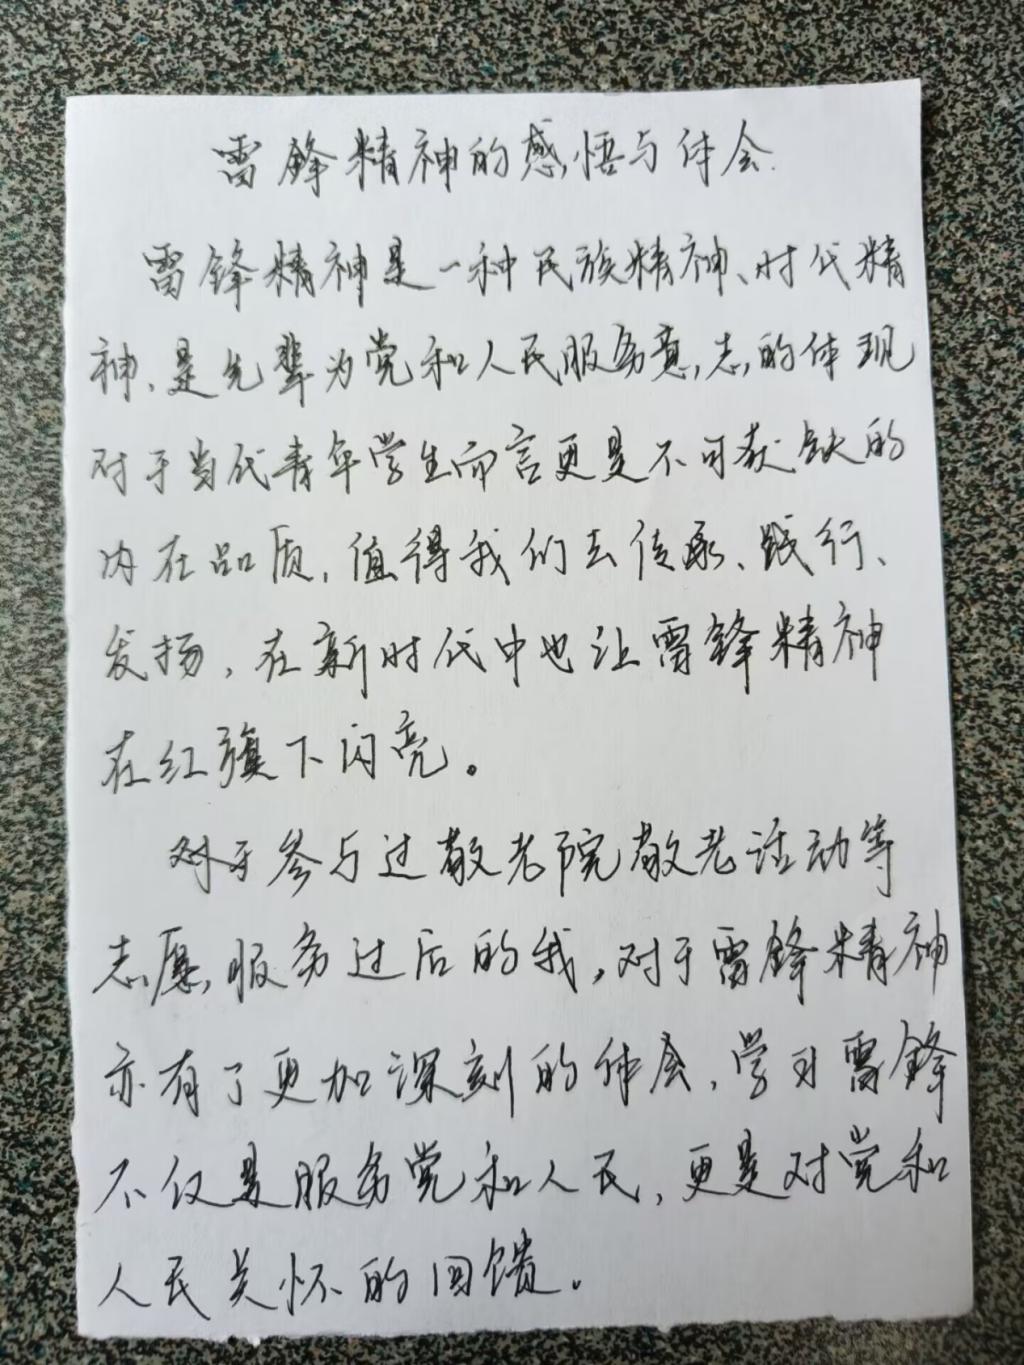 雷锋精神的感悟与体会.
雷锋精神是一种民族精神、时代精
神、是先辈为党和人民服务意志的体现
对于当代青年学生而言更是不可获缺的
内在品质,值得我们去传承、践行、
发扬,在新时代中也让雷锋精神
在红旗下闪亮。
对于参与过敬老院敬老活动等
志愿服务过后的我,对于雷锋精神
亦有了更加深刻的体会,学习雷锋
不仅是服务党和人民,更是对党和
人民关怀的回馈。